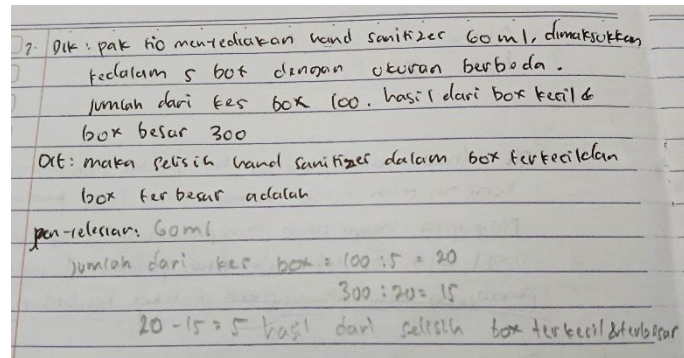 2. Dik : pak tio menyediakan hand sanitizer 60 ml, dimaksukkan
kedalam 5 box dengan ukuran berbeda.
jumlah dari kes box 100. hasil dari box kecil &
box besar 300
Dit : maka selisih hand sanitizer dalam box terkecil dan
box terbesar adalah
penyelesian: 60ml
jumlah dari kes box = 100 : 5 = 20
300 : 20 = 15
20 - 15 = 5 hasil dari selisih box terkecil & terbesar